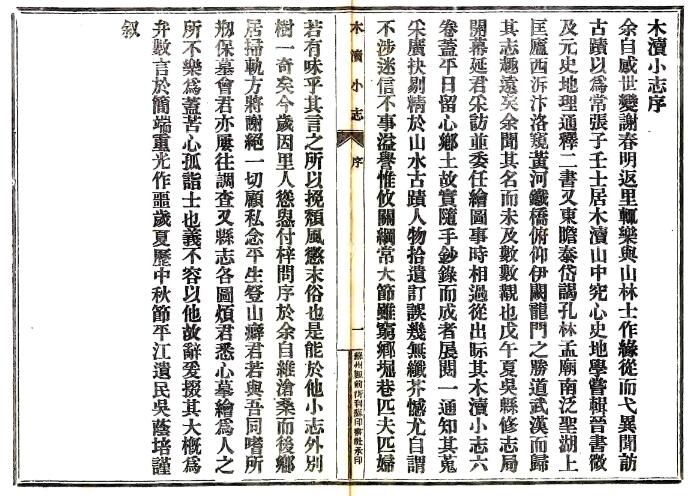 木瀆小志序
余自感世變謝春明返里輒樂與山林士作緣從而弋異聞訪
古蹟以爲常張子壬士居木瀆山中究心史地學嘗輯晉書徵
及元史地理通釋二書又東瞻泰岱謁孔林孟廟南泛聖湖上
匡廬西泝汴洛窺黃河鐵橋俯仰伊闕龍門之勝道武漢而歸
其志趣遠矣余聞其名而未及數數覯也戊午夏吳縣修志局
開幕延君采訪並委任繪圖事時相過從出眎其木瀆小志六
卷蓋平日留心鄉土故實隨手鈔錄而成者展閱一通知其蒐
采廣抉剔精於山水古蹟人物拾遺訂誤幾無纖芥憾尤自謂
不涉迷信不事溢譽惟攸關綱常大節雖窮鄉堀巷匹夫匹婦
木瀆小志
序
一
蘇州觀前街利蘇印書社承印
若有味乎其言之所以挽頹風懲末俗也是能於他小志外別
樹一奇矣今歲因里人慫恿付梓問序於余自維滄桑而後鄉
居掃軌方將謝絕一切顧私念平生登山癖君若與吾同嗜所
剏保墓會君亦屢往調查又縣志各圖煩君悉心摹繪爲人之
所不樂爲蓋苦心孤詣士也義不容以他故辭爰掇其大概爲
弁數言於簡端重光作噩歲夏歷中秋節平江遺民吳蔭培謹
叙